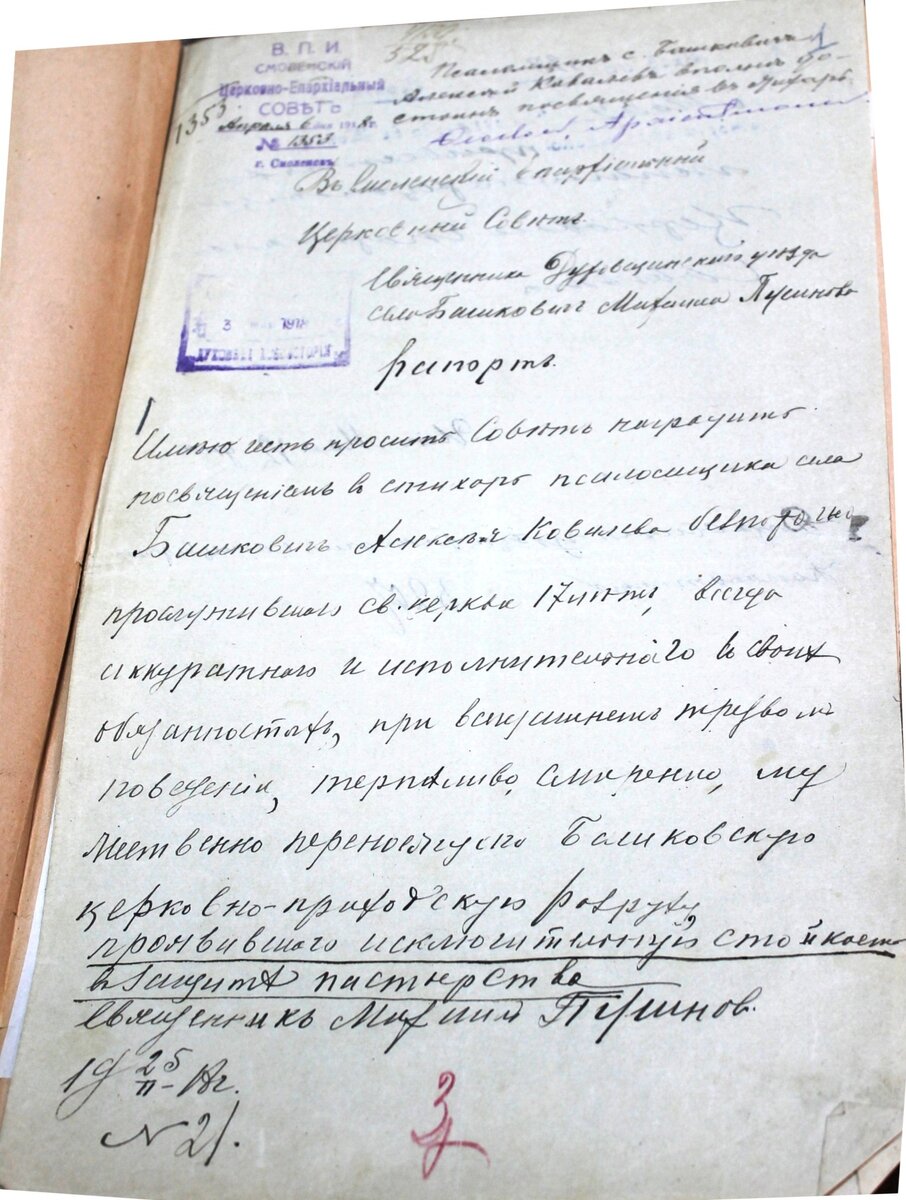 В. П. И.
СМОЛЕНСКІЙ
Церковно-Епархіальный
СОВѢТЪ
Апрѣля 6 дня 1918 г.
№ 1353
г. Смоленскъ
1353
525
1
Псаломщикъ с. Башковичъ
Алексѣй Ковалевъ вполнѣ до-
стоинъ посвященія въ стихарь.
Въ Смоленскій Епархіальный
Церковный Совѣтъ
Священника Духовщинскаго уѣзда
села Башковичъ Михаила
3 1918
Рапортъ.
Имѣю честь просить Совѣтъ наградить
посвященіемъ въ стихарь псаломщика села
Башковичъ Алексѣя Ковалева безпорочно
прослужившаго св. церкви 17 лѣтъ, всегда
аккуратнаго и исполнительнаго въ своихъ
обязанностяхъ, при всегдашнемъ трезвомъ
поведеніи, терпѣливо, смиренно, му
жественно переносящаго Башковскую
церковно-приходскую разруху,
проявившаго исключительную стойкость
въ защитѣ пастырства
Священникъ Михаилъ
19 25/II 18 г.
№ 21.
3